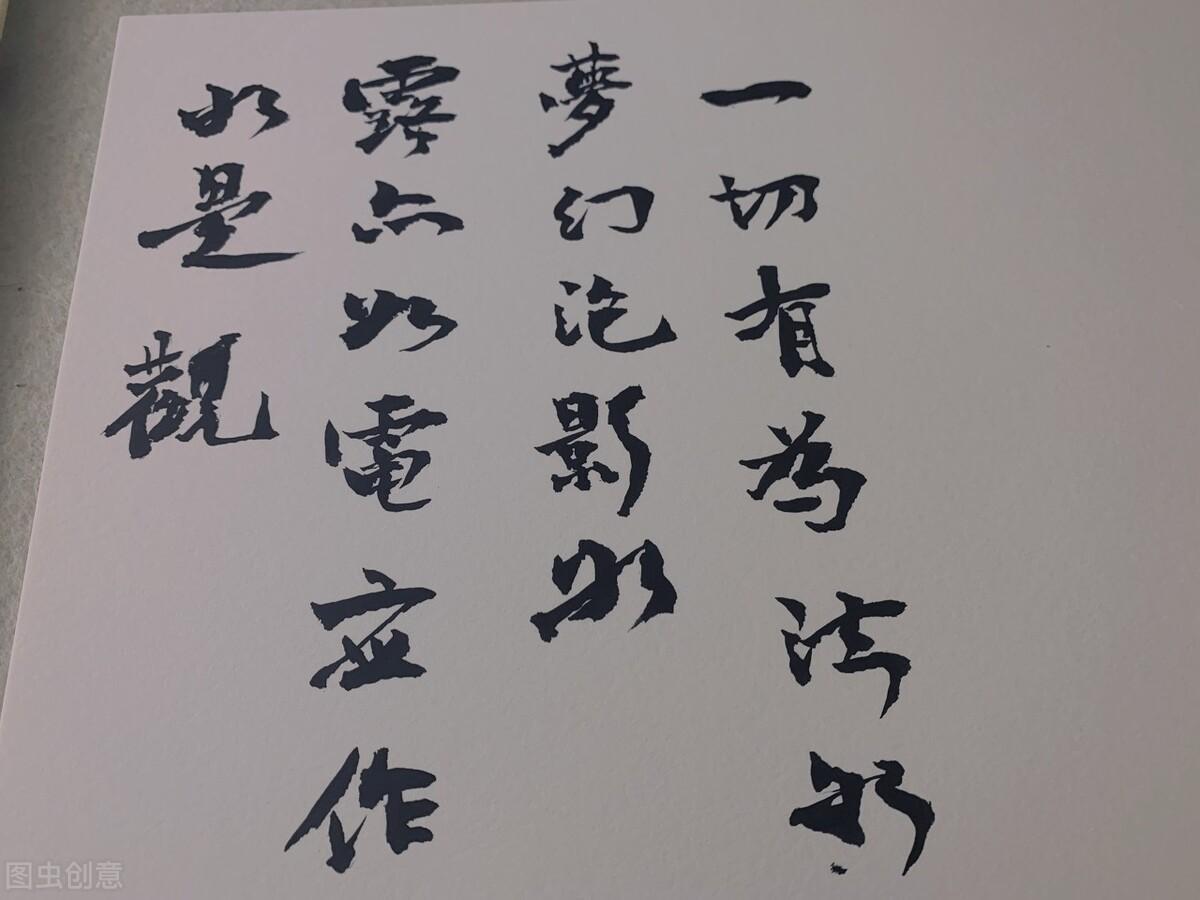 一切有為法如
夢幻泡影如
露亦如電应作
如是觀
图虫创意